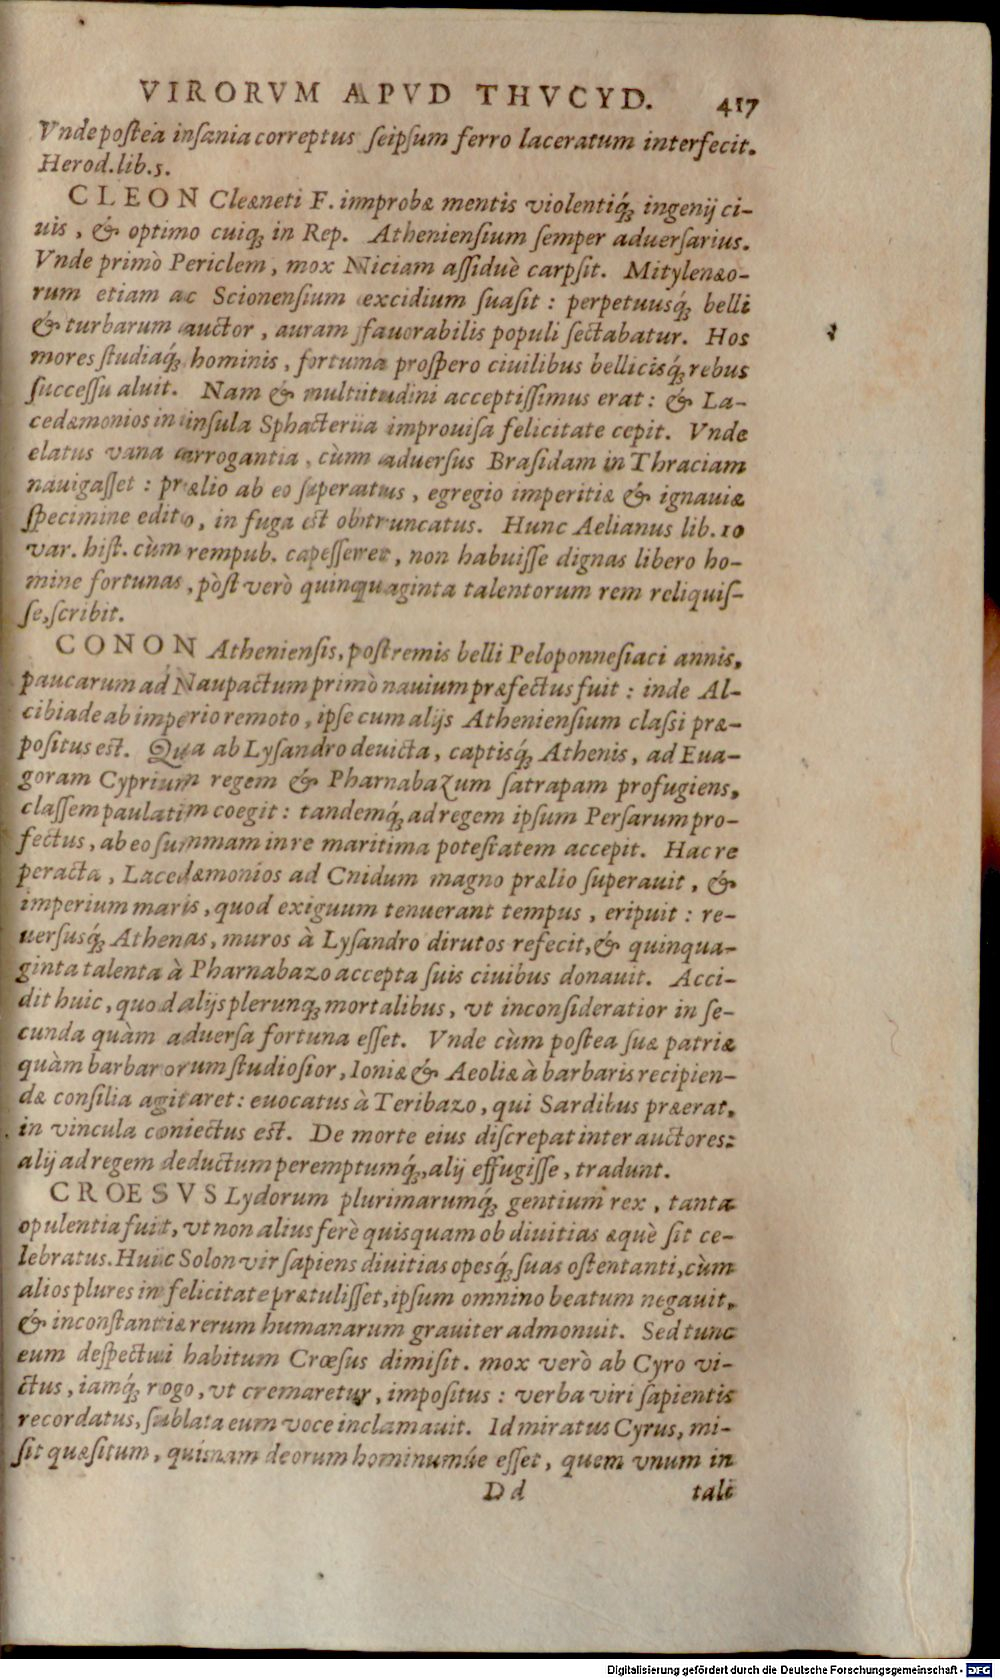 VIRORVM APVD THVCYD. 417
Vnde postea insania correptus seipsum ferro laceratum interfecit.
Herod. lib. 5.
CLEON Cleæneti F. improbæ mentis violentiq́; ingenij ci-
uis, & optimo cuiq; in Rep. Atheniensium semper aduersarius.
Vnde primò Periclem, mox Niciam assiduè carpsit. Mitylenæo-
rum etiam ac Scionensium excidium suasit: perpetuusq́; belli
& turbarum auctor, auram fauorabilis populi sectabatur. Hos
mores studiaq́; hominis, fortuna prospero ciuilibus bellicisq́; rebus
successu aluit. Nam & multitudini acceptissimus erat: & La-
cedæmonios in insula Sphacteria improuisa felicitate cepit. Vnde
elatus vana arrogantia, cùm aduersus Brasidam in Thraciam
nauigasset: prælio ab eo superatus, egregio imperitiæ & ignauiæ
specimine edito, in fuga est obtruncatus. Hunc Aelianus lib. 10
var. hist. cùm rempub. capesseret, non habuisse dignas libero ho-
mine fortunas, pòst verò quinquaginta talentorum rem reliquis-
se, scribit.
CONON Atheniensis, postremis belli Peloponnesiaci annis,
paucarum ad Naupactum primò nauium præfectus fuit: inde Al-
cibiade ab imperio remoto, ipse cum alijs Atheniensium classi præ-
positus est. Qua ab Lysandro deuicta, captisq́; Athenis, ad Eua-
goram Cyprium regem & Pharnabazum satrapam profugiens,
classem paulatim coegit: tandemq́; ad regem ipsum Persarum pro-
fectus, ab eo summam in re maritima potestatem accepit. Hac re
peracta, Lacedæmonios ad Cnidum magno prælio superauit, &
imperium maris, quod exiguum tenuerant tempus, eripuit: re-
uersusq́; Athenas, muros à Lysandro dirutos refecit, & quinqua-
ginta talenta à Pharnabazo accepta suis ciuibus donauit. Acci-
dit huic, quod alijs plerunq; mortalibus, vt inconsideratior in se-
cunda quàm aduersa fortuna esset. Vnde cùm postea suæ patriæ
quàm barbarorum studiosior, Ioniæ & Aeoliæ à barbaris recipien-
dæ consilia agitaret: euocatus à Teribazo, qui Sardibus præerat,
in vincula coniectus est. De morte eius discrepat inter auctores:
alij ad regem deductum peremptumq́;, alij effugisse, tradunt.
CROESVS Lydorum plurimarumq́; gentium rex, tanta
opulentia fuit, vt non alius ferè quisquam ob diuitias æquè sit ce-
lebratus. Huic Solon vir sapiens diuitias opesq́; suas ostentanti, cùm
alios plures in felicitate prætulisset, ipsum omnino beatum negauit,
& inconstantiæ rerum humanarum grauiter admonuit. Sed tunc
eum despectui habitum Crœsus dimisit. mox verò ab Cyro vi-
ctus, iamq́; rogo, vt cremaretur, impositus: verba viri sapientis
recordatus, sublata eum voce inclamauit. Id miratus Cyrus, mi-
sit quæsitum, quisnam deorum hominumúe esset, quem vnum in
Dd tali
Digitalisierung gefördert durch die Deutsche Forschungsgemeinschaft - DFG